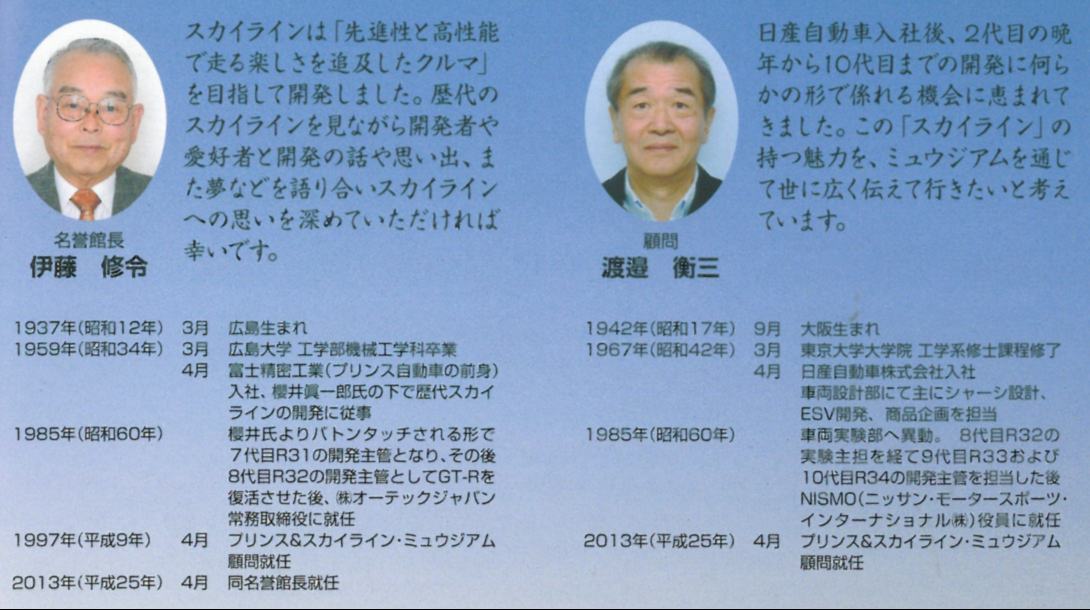 スカイラインは「先進性と高性能
で走る楽しさを追及したクルマ」
を目指して開発しました。歴代の
スカイラインを見ながら開発者や
愛好者と開発の話や思い出、ま
た夢などを語り合いスカイライン
への思いを深めていただければ
幸いです。
名誉館長
伊藤 修令
1937年(昭和12年) 3月 広島生まれ
1959年(昭和34年) 3月 広島大学 工学部機械工学科卒業
4月 富士精密工業(プリンス自動車の前身)
入社、櫻井眞一郎氏の下で歴代スカイ
ラインの開発に従事
1985年(昭和60年) 櫻井氏よりバトンタッチされる形で
7代目R31の開発主管となり、その後
8代目R32の開発主管としてGT-Rを
復活させた後、㈱オーテックジャパン
常務取締役に就任
1997年(平成9年) 4月 プリンス&スカイライン・ミュウジアム
顧問就任
2013年(平成25年) 4月 同名誉館長就任
日産自動車入社後、2代目の晩
年から10代目までの開発に何ら
かの形で係れる機会に恵まれて
きました。この「スカイライン」の
持つ魅力を、ミュウジアムを通じ
て世に広く伝えて行きたいと考え
ています。
顧問
渡邉 衡三
1942年(昭和17年) 9月 大阪生まれ
1967年(昭和42年) 3月 東京大学大学院 工学系修士課程修了
4月 日産自動車株式会社入社
車両設計部にて主にシャーシ設計、
ESV開発、商品企画を担当
1985年(昭和60年) 車両実験部へ異動。 8代目R32の
実験主担を経て9代目R33および
10代目R34の開発主管を担当した後
NISMO(ニッサン・モータースポーツ・
インターナショナル㈱)役員に就任
2013年(平成25年) 4月 プリンス&スカイライン・ミュウジアム
顧問就任